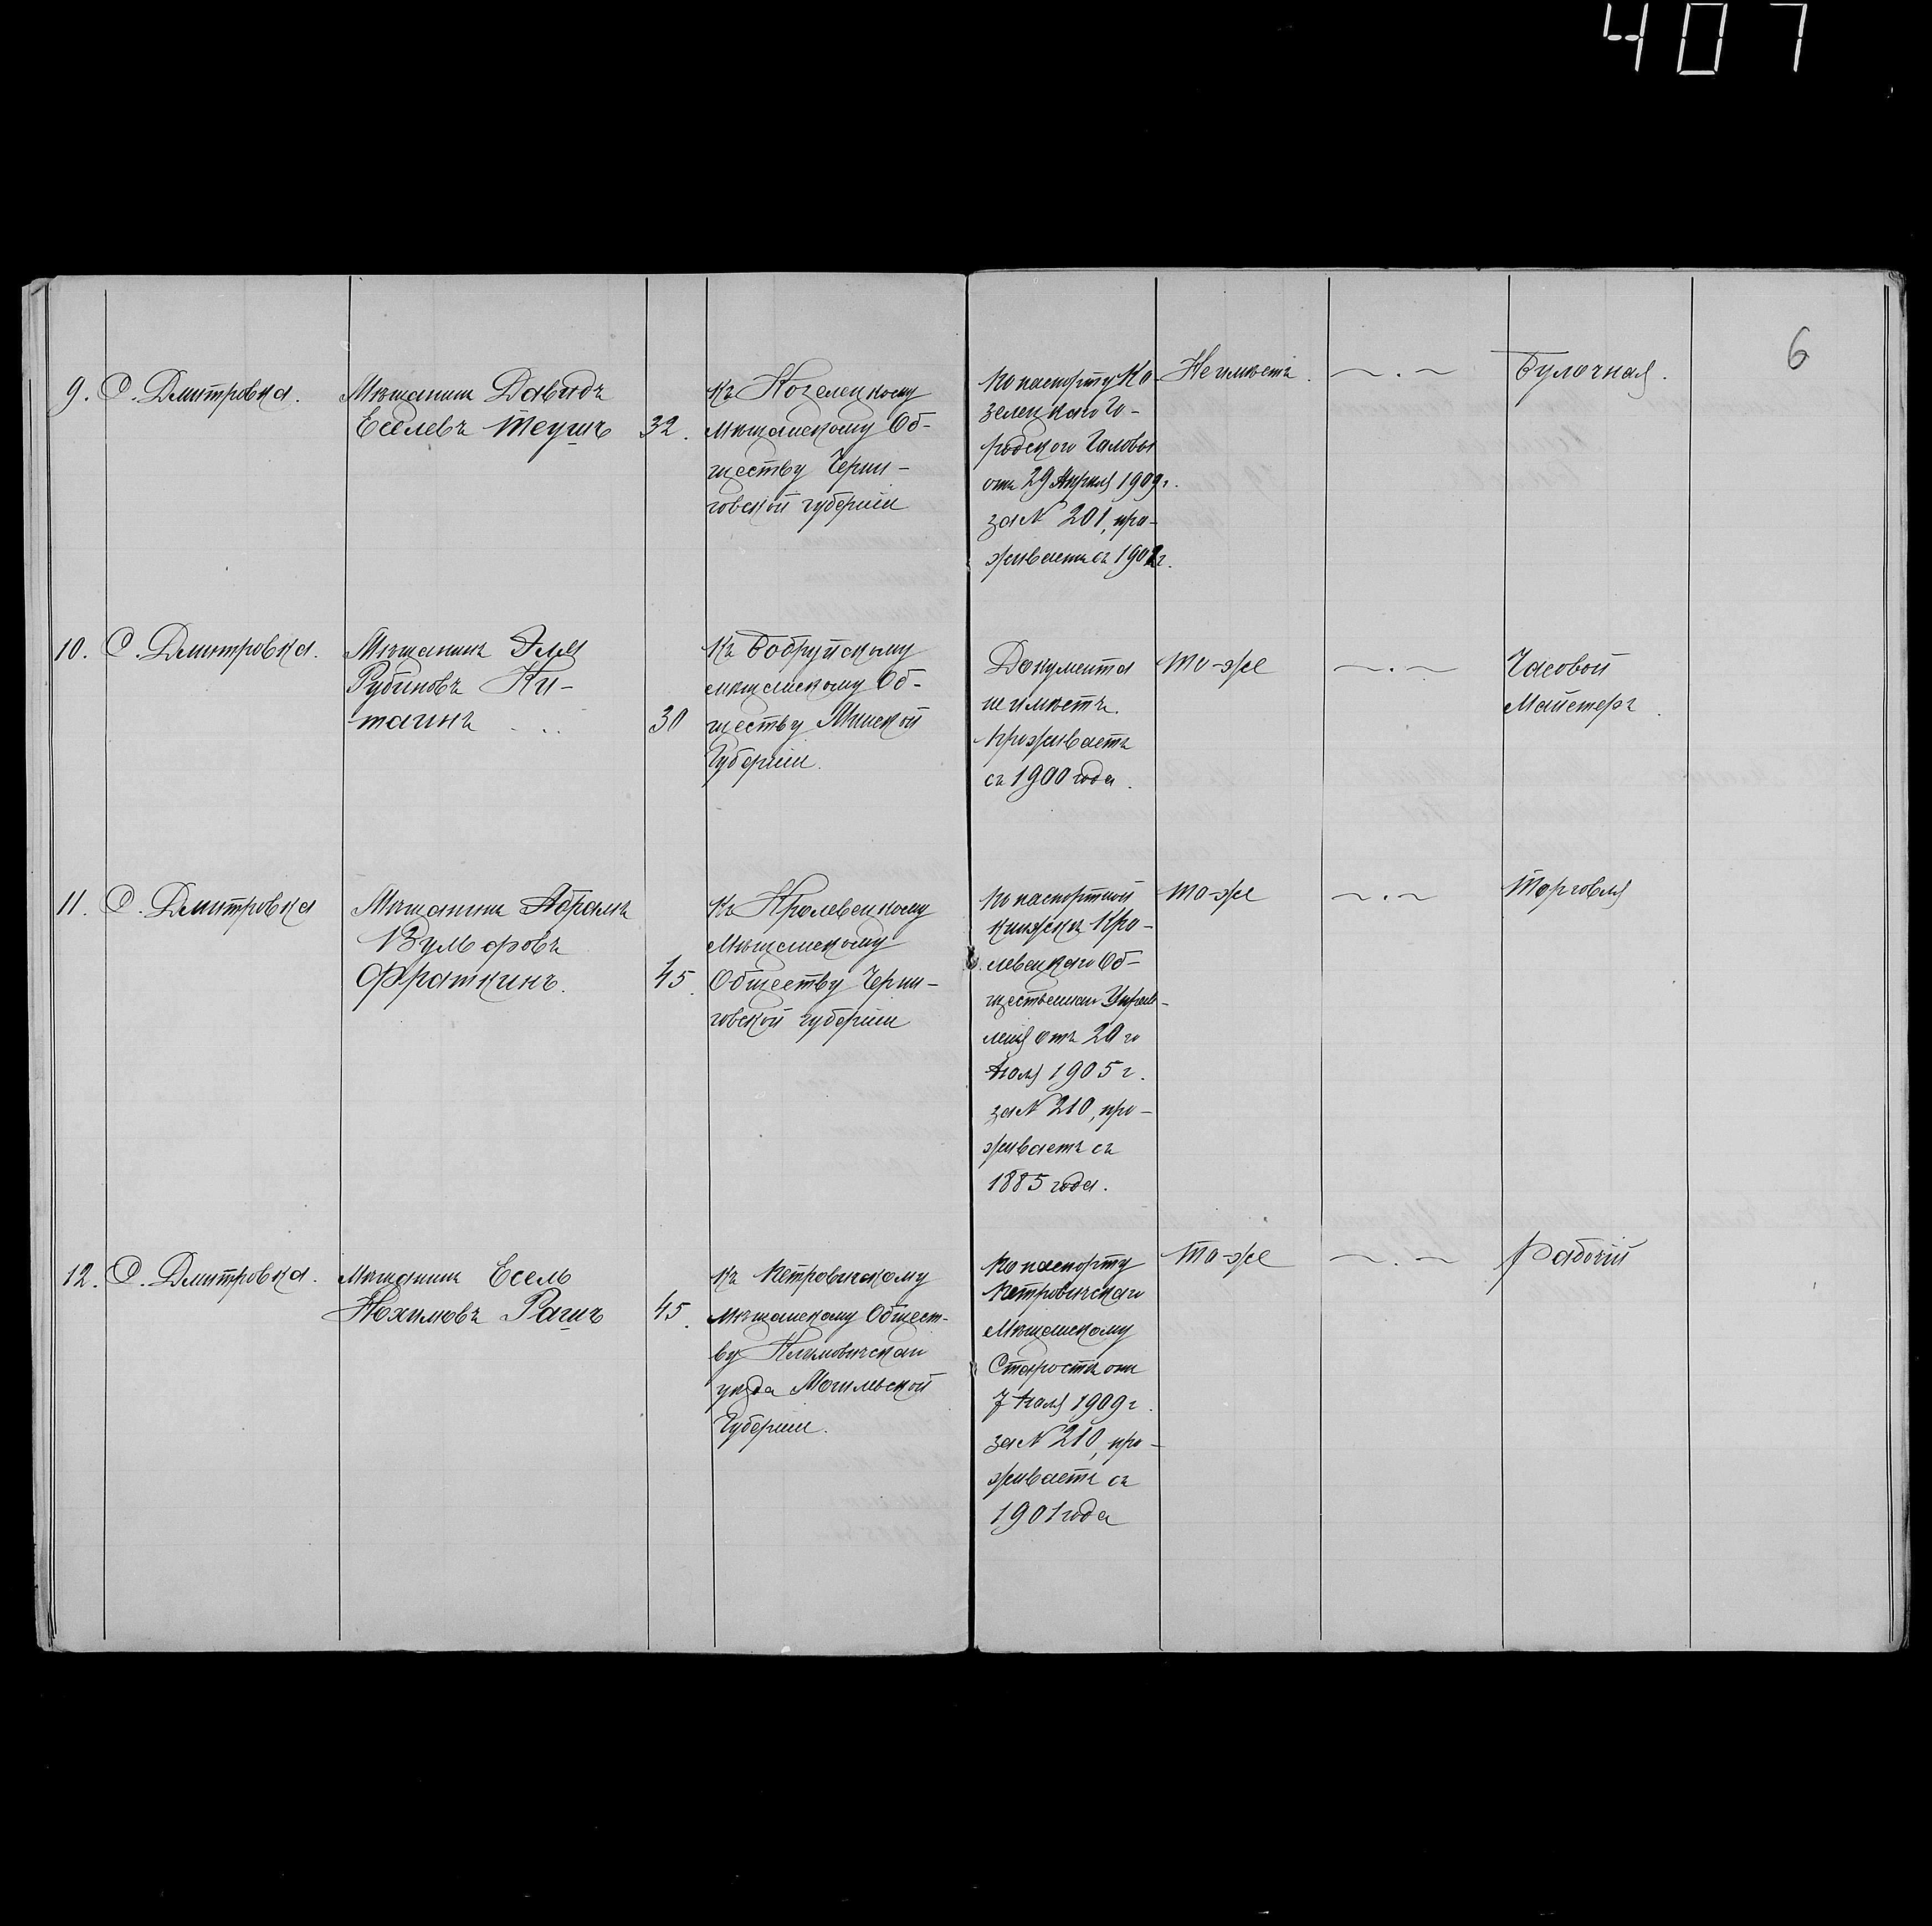 407
6
9. С. Дмитровка.
Мѣщанинъ Давидъ
Еселевъ Теушъ
32.
къ Козелецкому
мѣщанскому Об-
ществу Черни-
говской губерніи
по паспорту Ко-
зелецкаго Го-
родского Головы
отъ 29 Апрѣля 1909 г.
за № 201, про-
живаетъ съ 1902 г.
Не имѣетъ.
— . —
Булочная.
10. С. Дмитровка.
Мѣщанинъ Элья
Рубиновъ Ки-
таинъ . . .
30
къ Бобруйскому
мѣщанскому Об-
ществу Минской
Губерніи.
Документа
не имѣетъ.
Проживаетъ
съ 1900 года.
То-же
— . —
Часовой
Майстеръ.
11. С. Дмитровка
Мѣщанинъ Абрамъ
Вульфовъ
Фраткинъ.
45.
къ Кролевецкому
Мѣщанскому
Обществу Черни-
говской губерніи
По паспортной
книжкѣ Кро-
левецкаго Об-
щественнаго Управ-
ленія отъ 20 го
Іюля 1905 г.
за № 210, про-
живаетъ съ
1885 года.
То-же
— . —
Торговля
12. С. Дмитровка.
Мѣщанинъ Есель
Нохимовъ Рашъ
45.
къ Петровичскому
мѣщанскому Общест-
ву Климовичскаго
уѣзда Могилевской
Губерніи.
По паспорту
Петровичскаго
Мѣщанскому
Старосты отъ
7 Іюля 1909 г.
за № 210, про-
живаетъ съ
1901 года
То-же
— . —
Рабочій